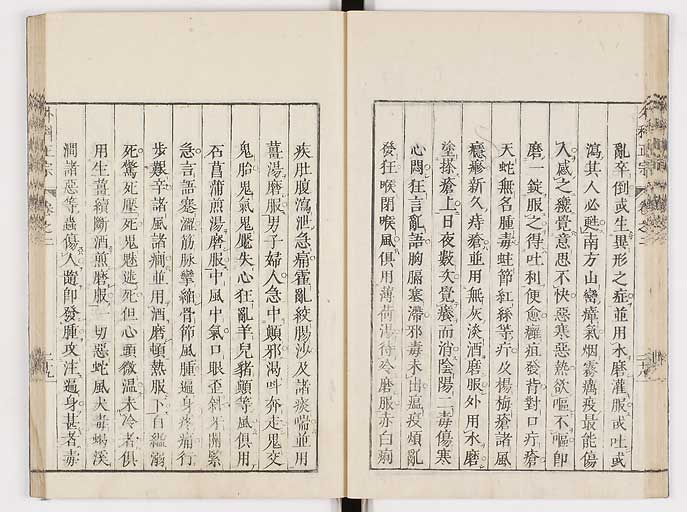 亂卒倒或生異形之症並用水磨灌服或吐或
瀉其人必甦南方山嵐瘴氣烟霧癘疫最能傷
人感之纔覺意思不快惡寒惡熱欲嘔不嘔即
磨一錠服之得吐利便愈癰疽發背對口疔瘡
天蛇無名腫毒蛀節紅絲等疔及楊梅瘡諸風
癮疹新久痔瘡並用無灰淡酒磨服外用水磨
塗搽瘡上日夜數次覺癢而消陰陽二毒傷寒
心悶狂言亂語胸膈塞滯邪毒未出瘟疫煩亂
發狂喉閉喉風俱用薄荷湯待冷磨服赤白痢
疾肚腹瀉泄急痛霍亂絞腸沙及諸痰喘並用
薑湯磨服男子婦人急中顛邪渴呌奔走鬼交
鬼胎鬼氣鬼魘失心狂亂羊兒豬顛等風俱用
石菖蒲煎湯磨服中風中氣口眼歪斜牙關緊
急言語蹇澀筋脉攣縮骨節風腫遍身疼痛行
步艱辛諸風諸癎並用酒磨頓熱服下自縊溺
死驚死壓死鬼魅迷死但心頭微温未冷者俱
用生薑續斷酒煎磨服一切惡蛇風犬毒蝎溪
澗諸惡等蟲傷人隨即發腫攻注遍身甚者毒